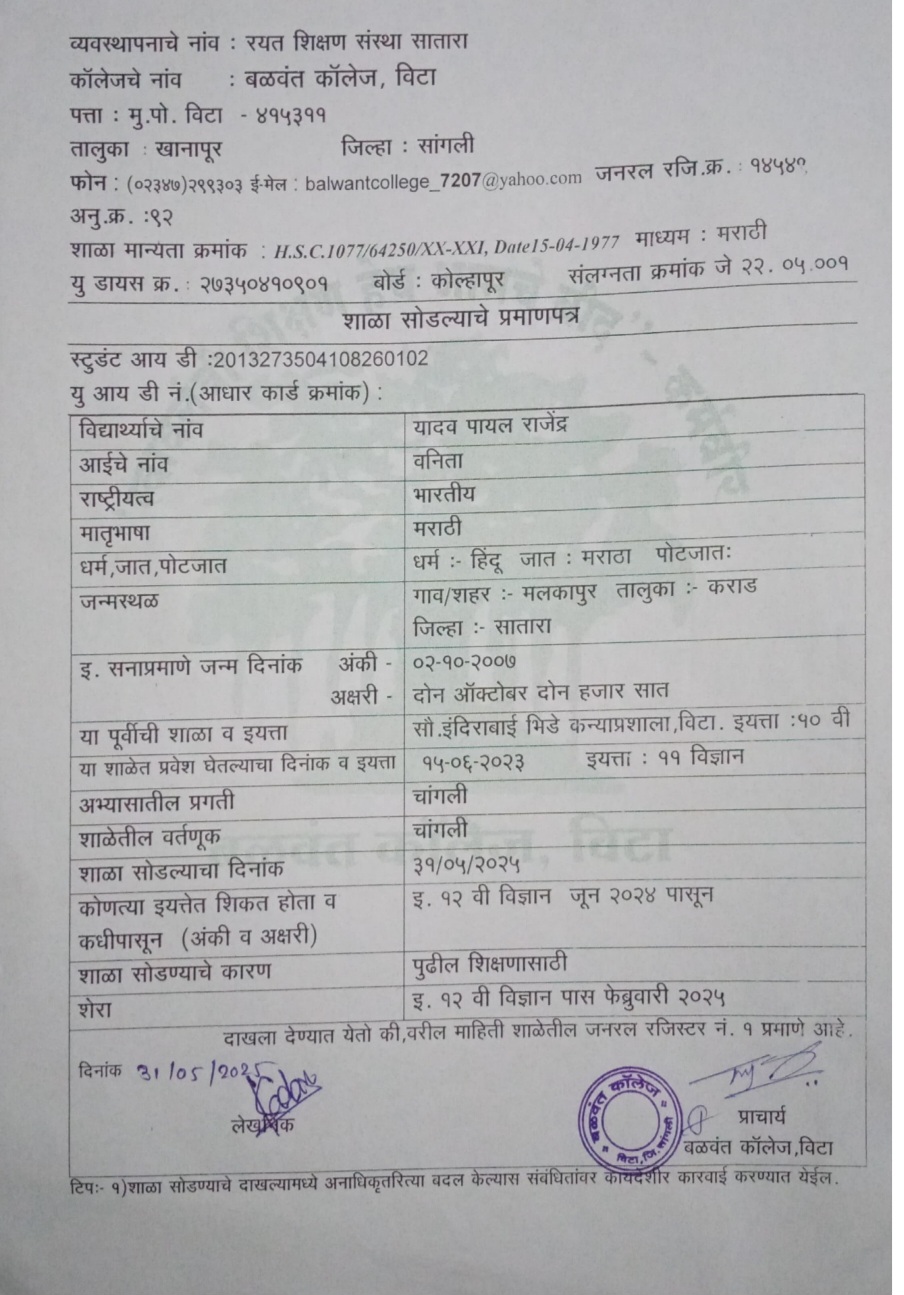 व्यवस्थापनाचे नांव : रयत शिक्षण संस्था सातारा
कॉलेजचे नांव : बळवंत कॉलेज, विटा
पत्ता : मु.पो. विटा - ४१५३११
तालुका : खानापूर जिल्हा : सांगली
फोन : (०२३४७)२९९३०३ ई-मेल : balwantcollege_7207@yahoo.com जनरल रजि.क्र. :
अनु.क्र. :९२
शाळा मान्यता क्रमांक : H.S.C.1077/64250/XX-XXI, Date15-04-1977 माध्यम : मराठी
यु डायस क्र. : २७३५०४१०९०१ बोर्ड : कोल्हापूर संलग्नता क्रमांक जे २२. ०५.००१
शाळा सोडल्याचे प्रमाणपत्र
स्टुडंट आय डी :2013273504108260102
यु आय डी नं.(आधार कार्ड क्रमांक) :
विद्यार्थ्याचे नांव यादव पायल राजेंद्र
आईचे नांव वनिता
राष्ट्रीयत्व भारतीय
मातृभाषा मराठी
धर्म,जात,पोटजात धर्म :- हिंदू जात : मराठा पोटजातः
जन्मस्थळ गाव/शहर :- मलकापुर तालुका :- कराड
जिल्हा :- सातारा
इ. सनाप्रमाणे जन्म दिनांक अंकी - ०२-१०-२००७
अक्षरी - दोन ऑक्टोबर दोन हजार सात
या पूर्वीची शाळा व इयत्ता सौ.इंदिराबाई भिडे कन्याप्रशाला,विटा. इयत्ता :१० वी
या शाळेत प्रवेश घेतल्याचा दिनांक व इयत्ता १५-०६-२०२३ इयत्ता : ११ विज्ञान
अभ्यासातील प्रगती चांगली
शाळेतील वर्तणूक चांगली
शाळा सोडल्याचा दिनांक ३१/०५/२०२५
कोणत्या इयत्तेत शिकत होता व इ. १२ वी विज्ञान जून २०२४ पासून
कधीपासून (अंकी व अक्षरी)
शाळा सोडण्याचे कारण पुढील शिक्षणासाठी
शेरा इ. १२ वी विज्ञान पास फेब्रुवारी २०२५
दाखला देण्यात येतो की,वरील माहिती शाळेतील जनरल रजिस्टर नं. १ प्रमाणे आहे.
दिनांक 31/05/2025
लेखनिक
बळवंत कॉलेज
विटा,जि.सांगली
प्राचार्य
बळवंत कॉलेज,विटा
टिपः- १)शाळा सोडण्याचे दाखल्यामध्ये अनाधिकृतरित्या बदल केल्यास संबंधितांवर कायदेशीर कारवाई करण्यात येईल.